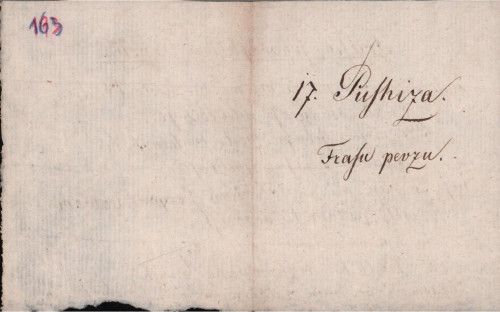 163
17. Pushiza.
Frasu pevzu.